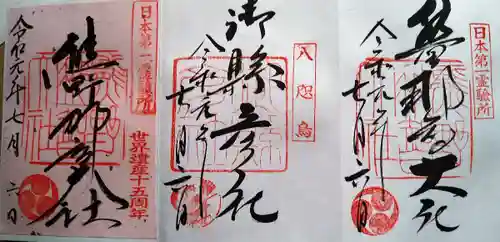 日本第一霊験所
熊野那智大社
令和元年七月六日
八咫烏
御縣彦社
令和元年七月六日
日本第一霊験所
世界遺産十五周年
熊野那智大社
令和元年七月六日